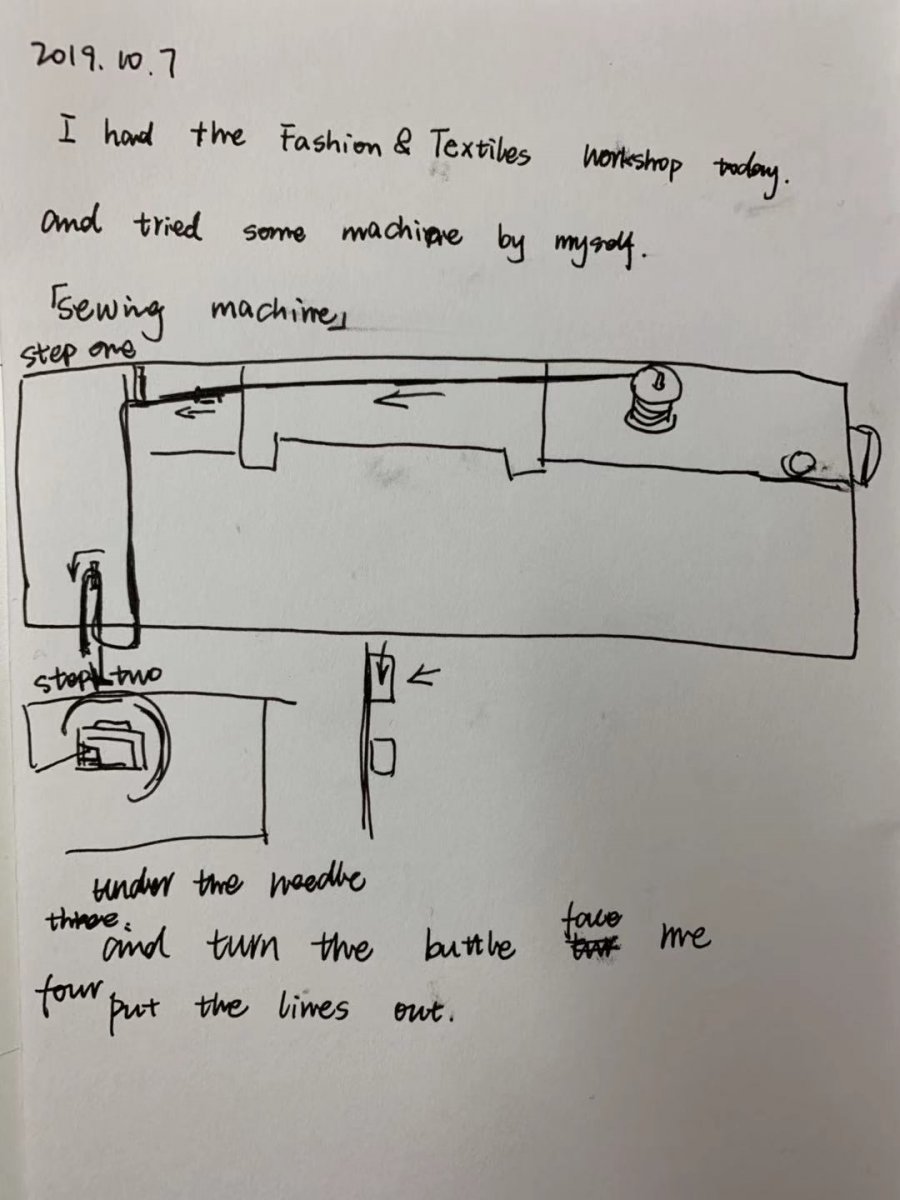 2019.10.7
I had the Fashion & Textiles workshop today.
and tried some machine by myself.
「sewing machine」
step one
step two
under the needle
three. and turn the buttle face me
four put the lines out.